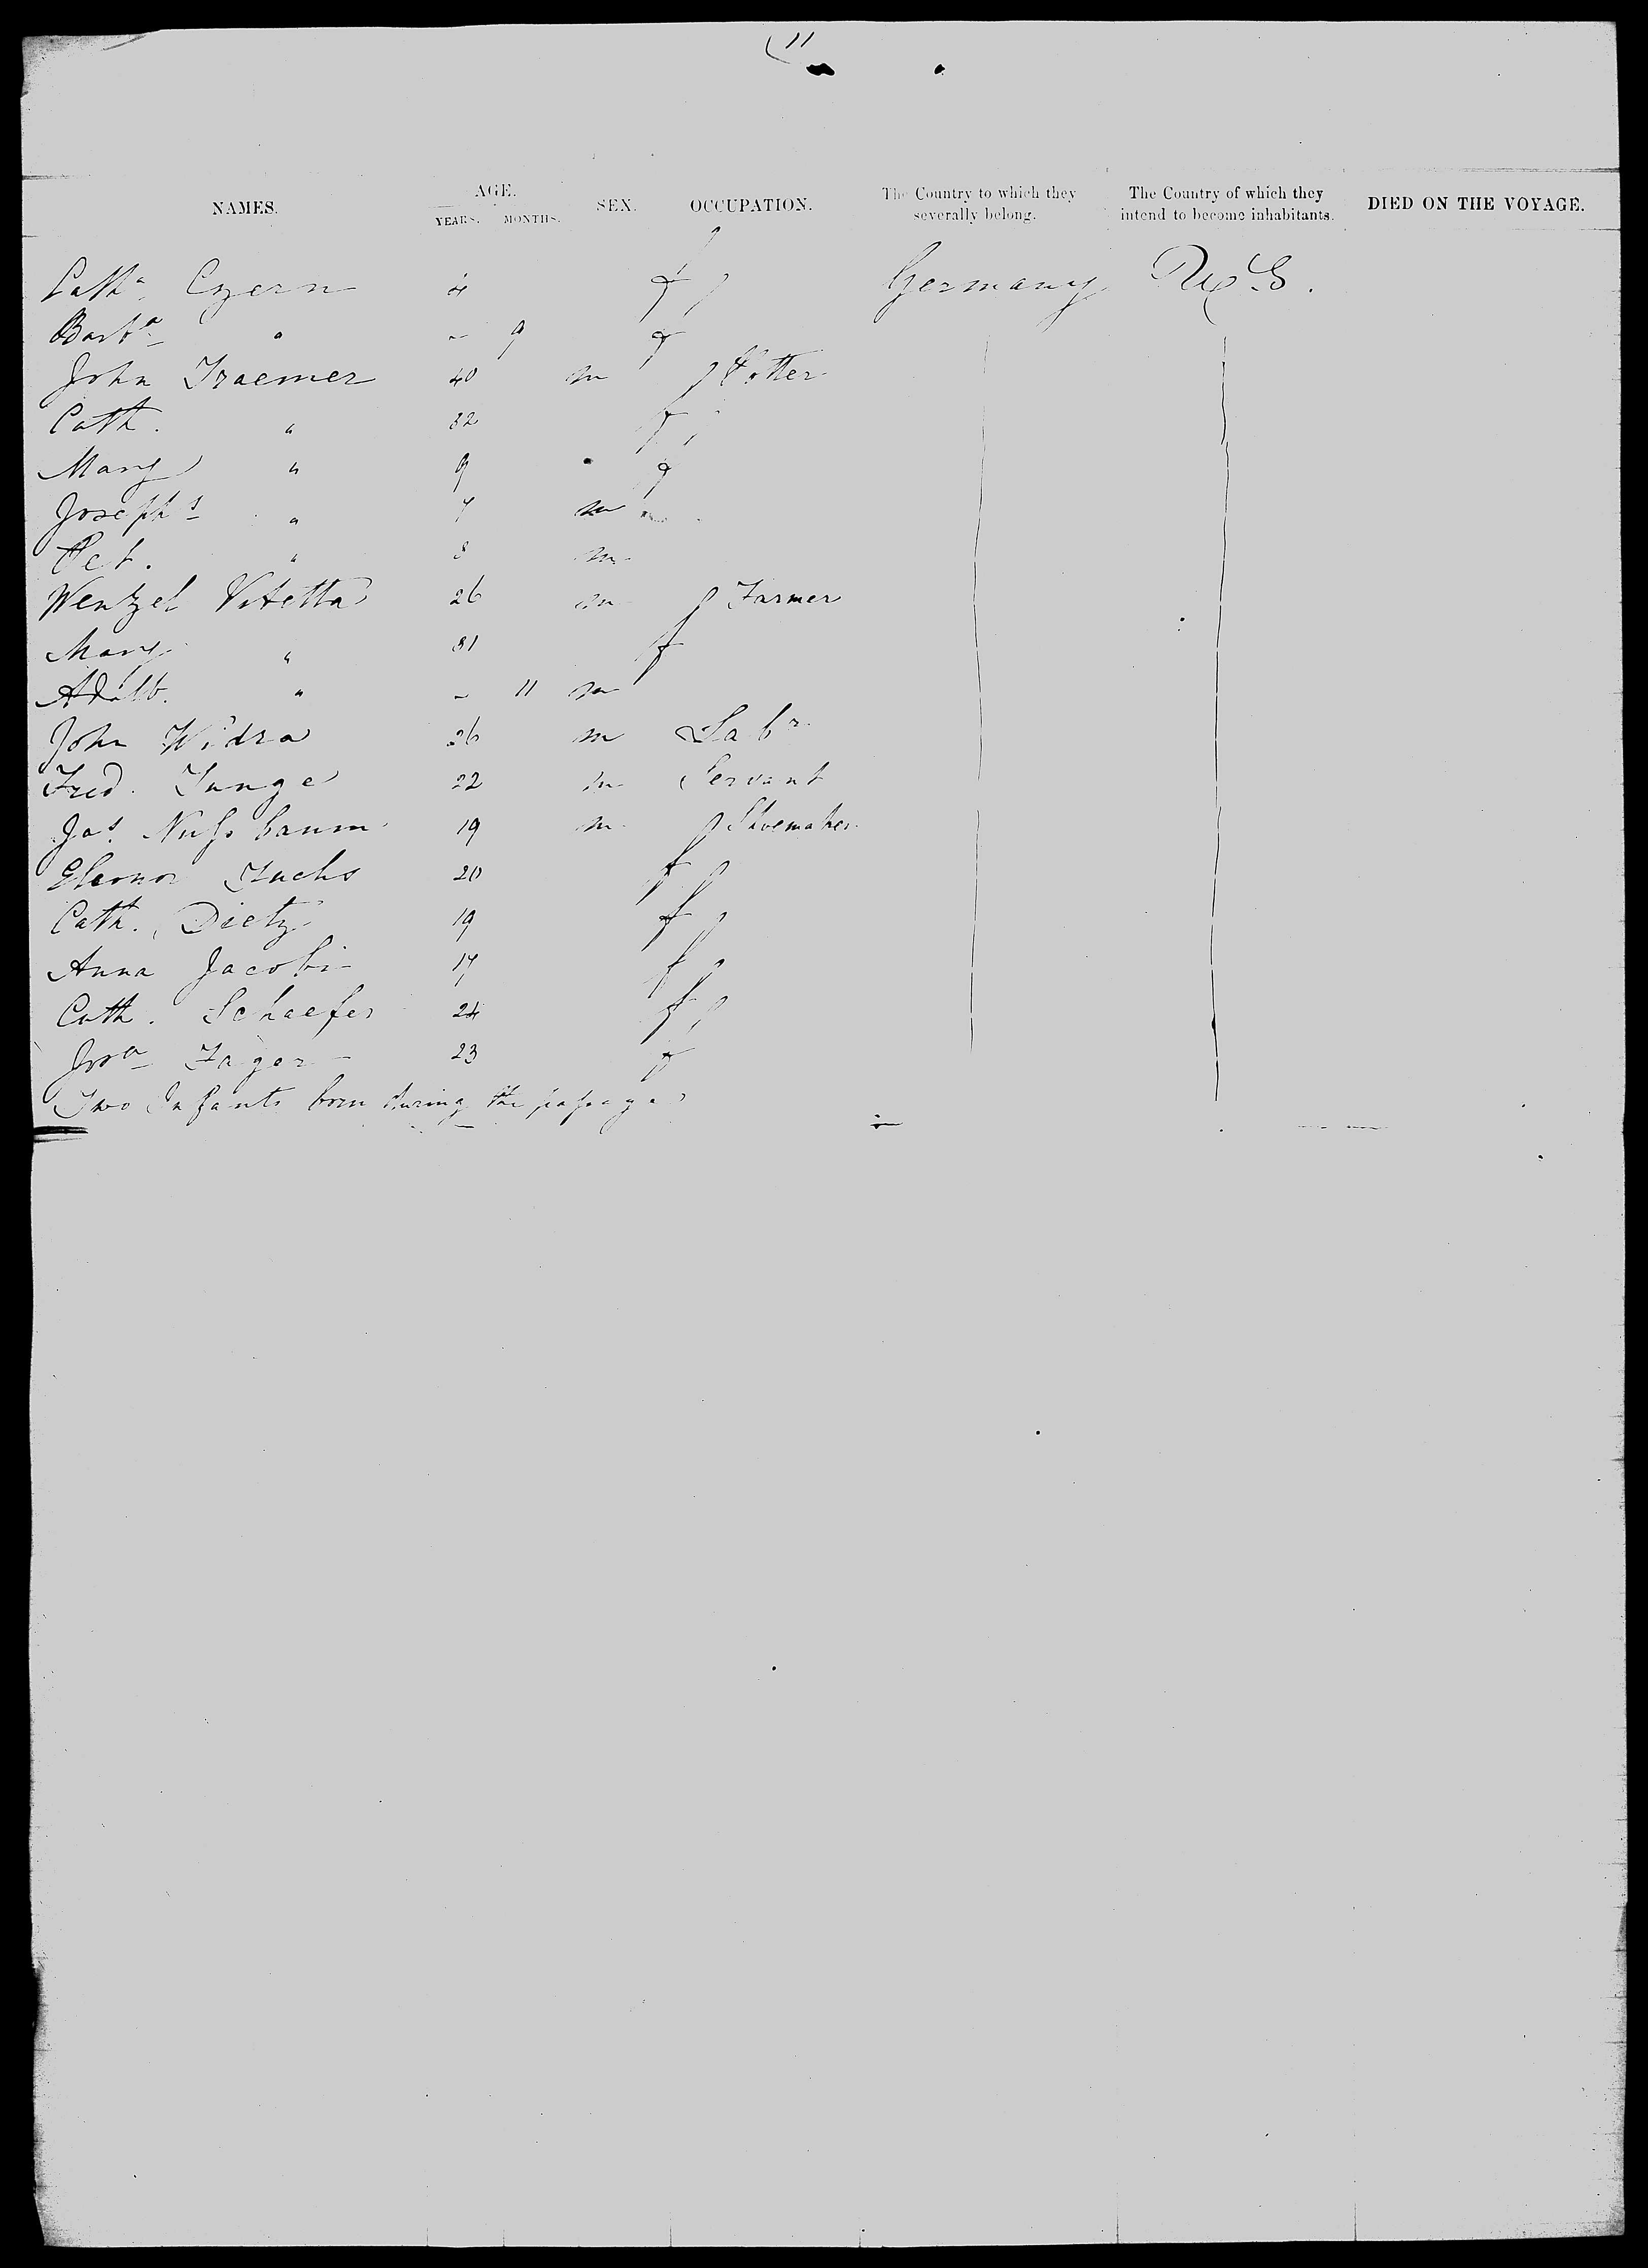 11
NAMES. AGE. YEARS. MONTHS. SEX. OCCUPATION. The Country to which they severally belong. The Country of which they intend to become inhabitants. DIED ON THE VOYAGE.
Cath^a Czern 4 f Germany U.S.
Barb^a " - 9 f
John Traemer 40 m Potter
Cath. " 32 f
Mary " 9 f
Joseph " 7 m
Pet. " 8 m
Wenzel Vitetta 26 m Farmer
Mary " 31 f
Adalb. " - 11 m
John Widra 26 m Lab^r
Fred. Junge 22 m Servant
Jas. Nussbaum 19 m Shoemaker
Eleonor Fuchs 20 f
Cath. Dietz 19 f
Anna Jacobi 17 f
Cath. Schaefer 24 f
Jos^a Jager 23 f
Two Infants born during the passage